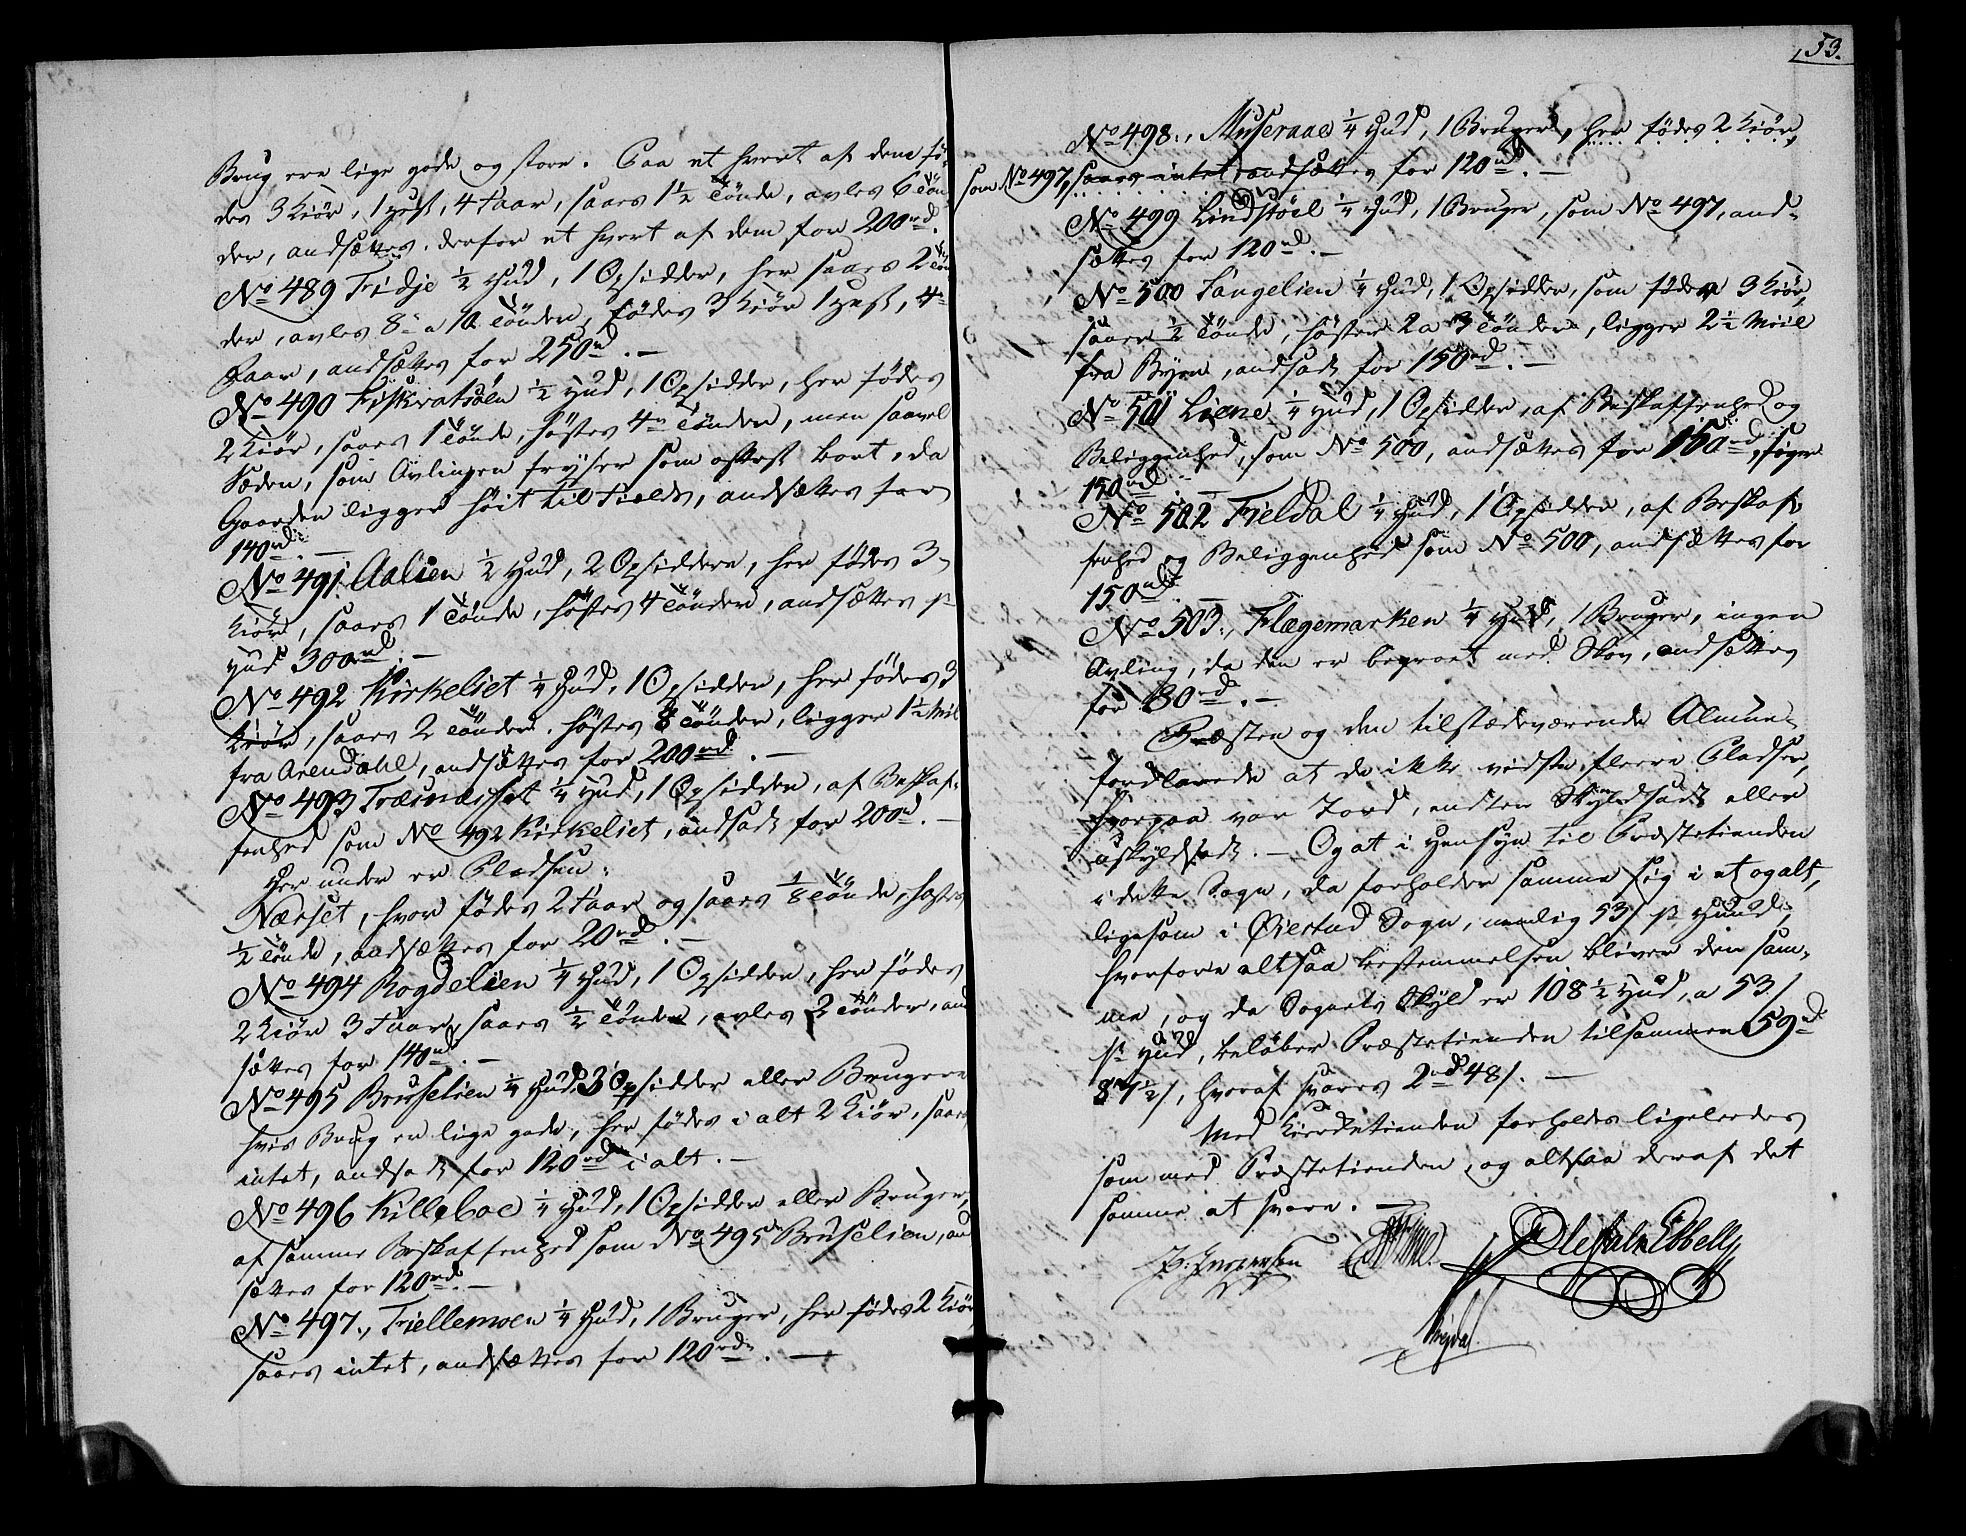 Brug ere lige gode og store. Paa et hvert af dem fø-
des 3 Kiør, 1 Hest, 4 Faar, saaes 1½ Tønde, avles 6 Tøn
der, andsættes derfor et hvert af dem for 200rd.
No 489 Tridje ½ Hud, 1 Opsidder, her saaes 2 Tøn
der, avles 8 a 10 Tønder, fødes 3 Kiør 1 Hest, 4
Faar, andsættes for 250rd. —
No 490 Fiskvatsøen ½ Hud, 1 Opsidder, her fødes
2 Kiør, saaes 1 Tønde, høstes 4 Tønder, men saavel
Sæden, som Avlingen fryser som oftest bort, da
Gaarden ligger høit til Fields, andsættes for
140rd. —
No 491. Aalien ½ Hud, 2 Opsiddere, her fødes 3
Kiør, saaes 1 Tønde, høstes 4 Tønder, andsættes pr
Hud 300rd. —
No 492 Kirkeliet ¼ Hud, 1 Opsidder, her fødes 3
Kiør, saaes 2 Tønder, høstes 8 Tønder, ligger 1½ Miil
fra Arendahl, andsættes for 200rd. —
No 493 Træinæsset ¼ Hud, 1 Opsidder, af Beskaf-
fenhed som No 492 Kirkeliet, andsadt for 200rd. —
Her under er Pladsen:
Nærset, hvor fødes 2 Faar og saaes 1/8 Tønde, høstes
½ Tønde, andsættes for 20rd. —
No 494 Bogdelien ¼ Hud, 1 Opsidder, her fødes
2 Kiør 3 Faar, saaes ½ Tønde, avles 2 Tønder, and
sættes for 140rd. —
No 495 Bruselien ¼ Hud, 3 Opsidder eller Brugere
hvis Brug er lige gode, her fødes i alt 2 Kiør, saaes
intet, andsadt for 120rd i alt. —
No 496 Killeboe ¼ Hud, 1 Opsidder eller Bruger,
af samme Beskaffenhed som No 495 Bruselien, and
sættes for 120rd. —
No 497., Tiellemoen ¼ Hud, 1 Bruger, her fødes 2 Kiør
saaes intet, andsættes for 120rd. —
53.
No 498., Museraae ¼ Hud, 1 Bruger, her fødes 2 Kiør,
som No 497, saaes intet, andsættes for 120rd. —
No 499 Lindstöel ¼ Hud, 1 Bruger, som No 497, and-
sættes for 120rd. —
No 500 Langelien ¼ Hud, 1 Opsidder, som føder 3 Kiør,
saaer ½ Tønde, høster 2 a 3 Tønder, ligger 2½ Miil
fra Byen, andsadt for 150rd. —
No 501 Liene ¼ Hud, 1 Opsidder, af Beskaffenhed og
Beliggenhed, som No 500, andsættes for 150rd, siger
150rd. —
No 502 Fieldal ¼ Hud, 1 Opsidder, af Beskaf-
fenhed og Beliggenhed som No 500, andsættes for
150rd. —
No 503., Flægemarken ¼ Hud, 1 Bruger, ingen
Avling, da den er begroet med Skov, andsættes
for 80rd. —
Præsten og den tilstædeværende Almue
forklarede at de ikke vidste fleere Pladser,
hvorpaa var Jord, enten Skyldsadt eller
uskyldsadt. — Og at i Hensyn til Præstetienden
i dette Sogn, da forholder samme sig i et og alt,
ligesom i Øiestad Sogn, nemlig 53/ pr Huud,
hvorfore altsaa bestemmelsen bliver den sam-
me, og da Sognets Skyld er 108½ Hud, a 53/
pr Hud, beløber Præstetienden tilsammen 59rd
87½/, hvoraf svares 2rd 48/. —
Med Kirketienden forholdes ligeledes
som med Præstetienden, og altsaa deraf det
samme at svare. —
Ebbell